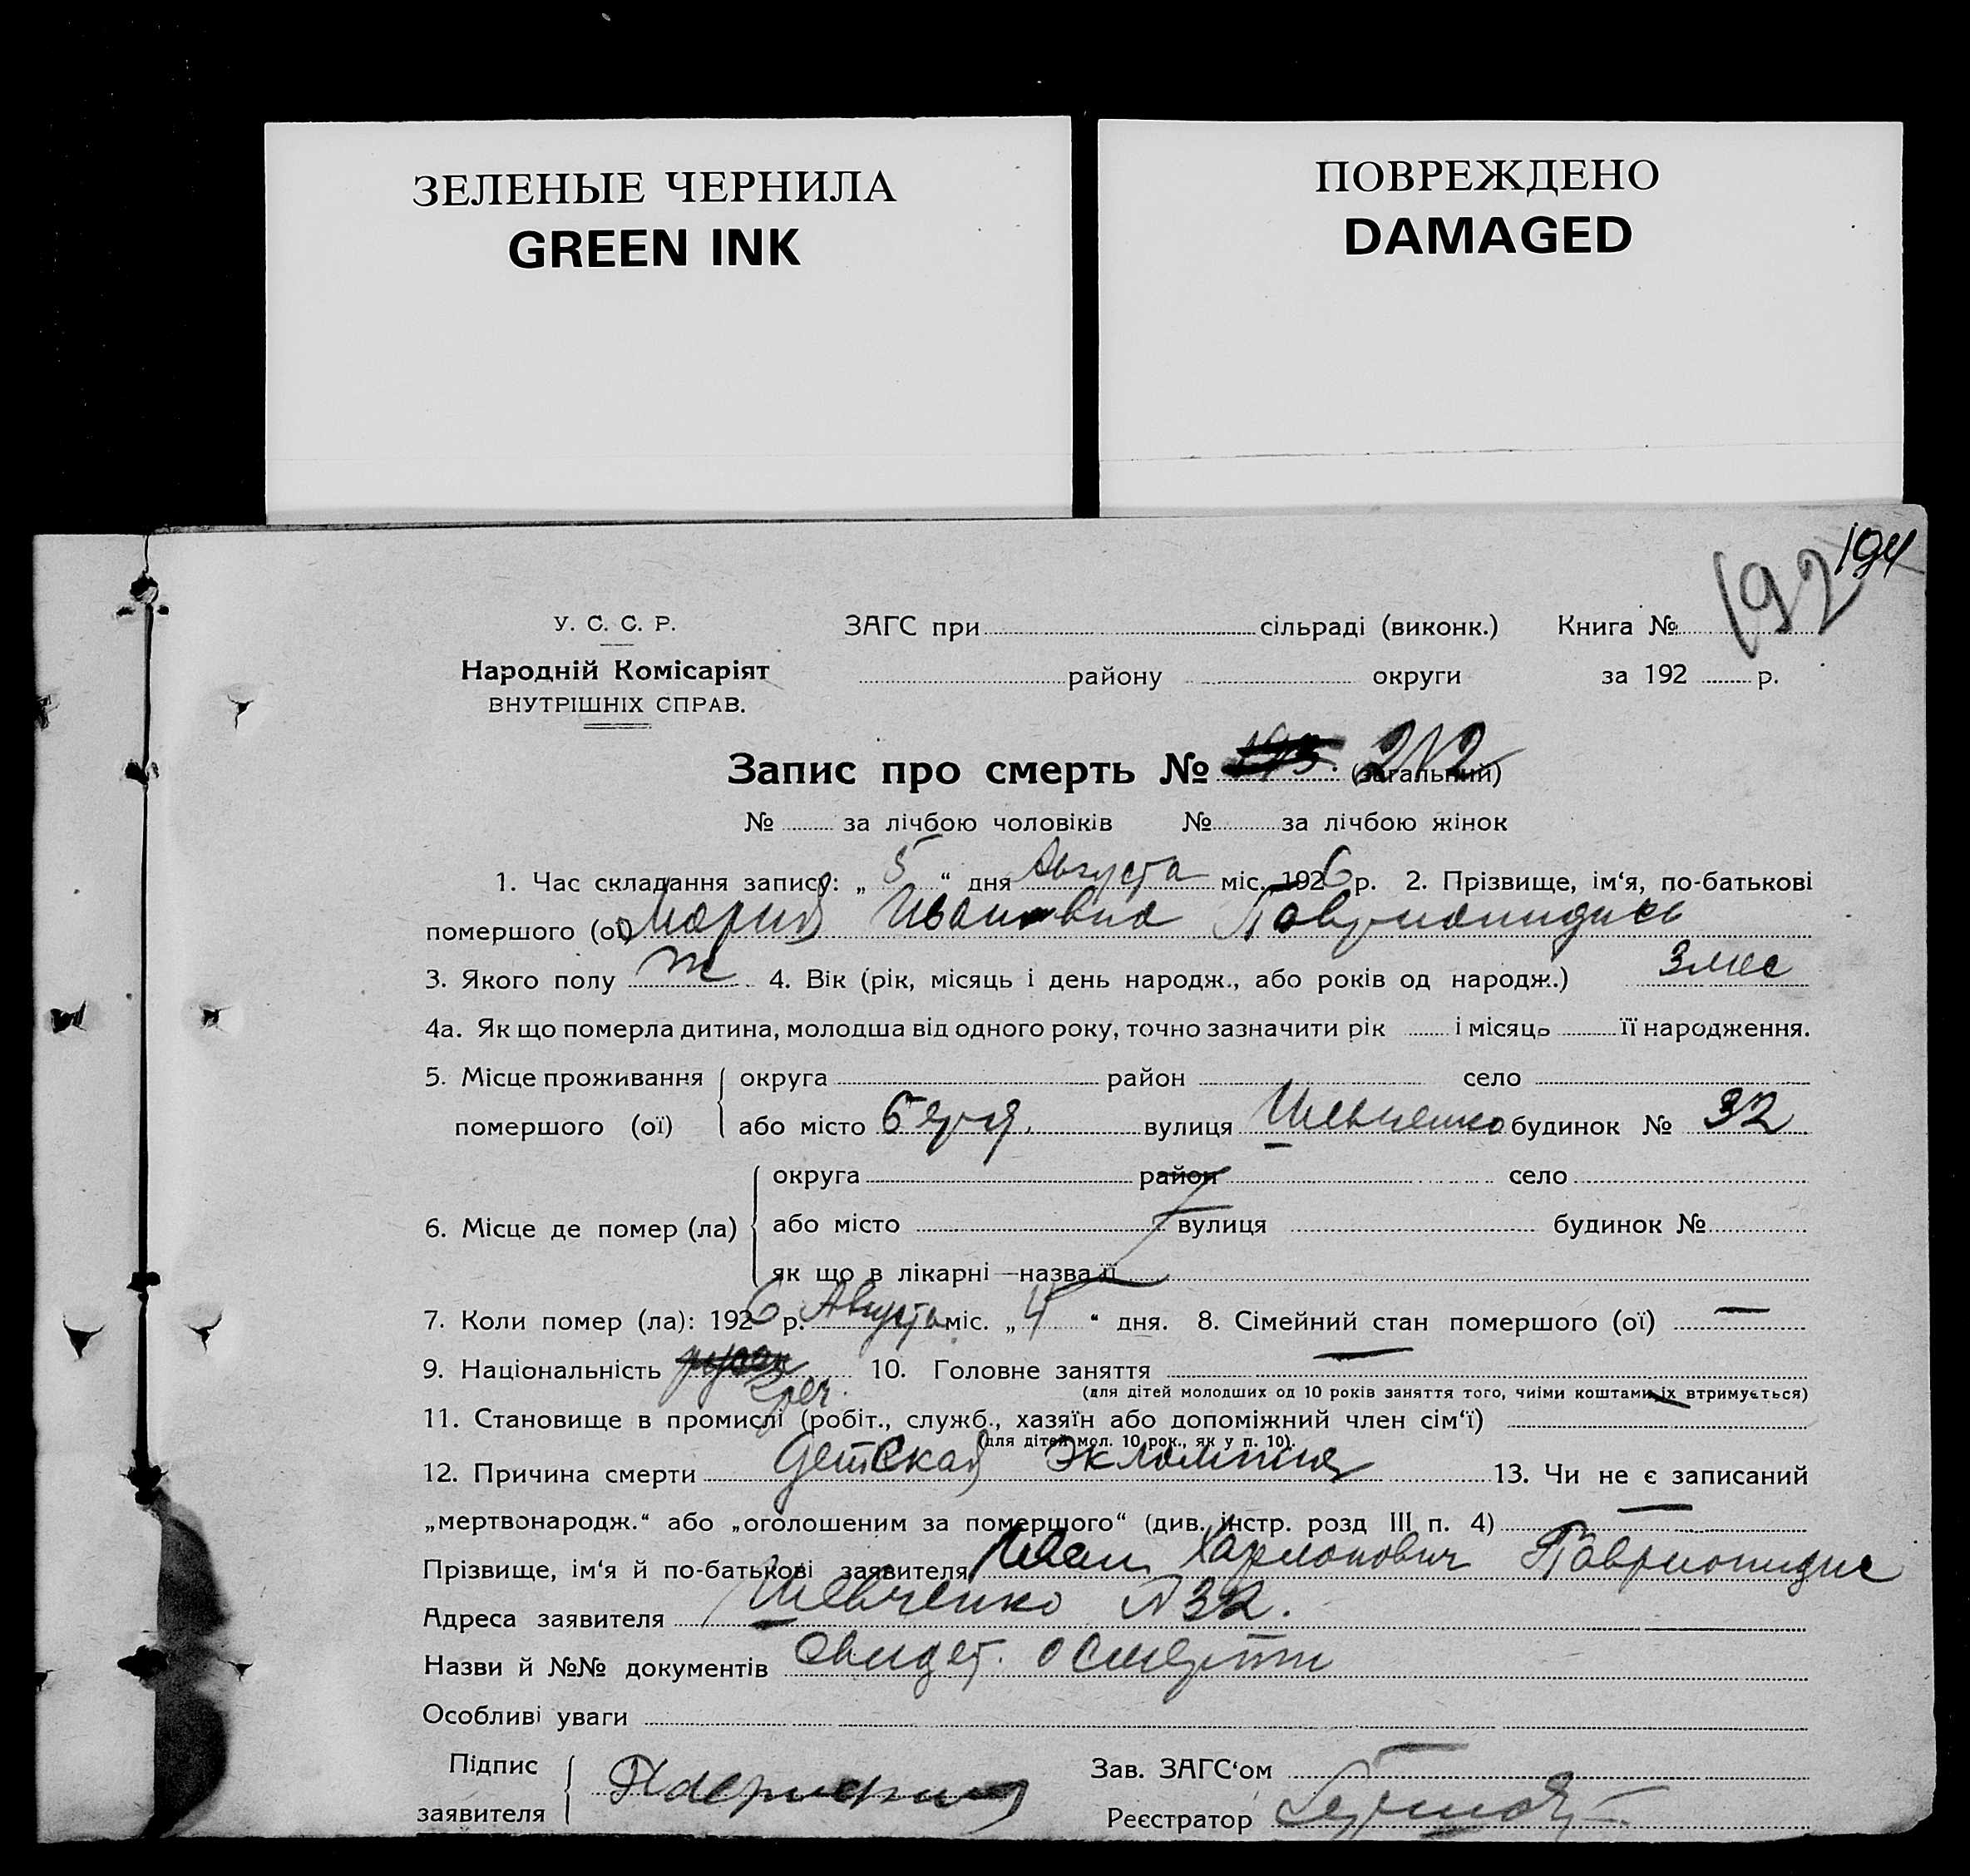 ЗЕЛЕНЫЕ ЧЕРНИЛА
GREEN INK
ПОВРЕЖДЕНО
DAMAGED
194
192
У. С. С. Р. ЗАГС при сільраді (виконк.) Книга №
Народній Комісаріят району округи за 192 р.
ВНУТРІШНІХ СПРАВ.
Запис про смерть № 193. 212 (загальний)
№ за лічбою чоловіків № за лічбою жінок
1. Час складання запису: „ 5 “ дня Августа міс. 1926 р. 2. Прізвище, ім‘я, по-батькові
помершого (ої) Мария Ивановна
3. Якого полу ж 4. Вік (рік, місяць і день народж., або років од народж.) 3 мес
4а. Як що померла дитина, молодша від одного року, точно зазначити рік і місяць її народження.
5. Місце проживання округа район село
помершого (ої) або місто вулиця Шевченко будинок № 32
округа район село
6. Місце де помер (ла) або місто вулиця будинок №
як що в лікарні—назва її
7. Коли помер (ла): 1926 р. Августа міс. „ 4 “ дня. 8. Сімейний стан помершого (ої) —
9. Національність греч. 10. Головне заняття —
(для дітей молодших од 10 років заняття того, чиїми коштами їх втримується)
11. Становище в промислі (робіт., служб., хазяїн або допоміжний член сім‘ї) —
(для дітей мол. 10 рок., як у п. 10).
12. Причина смерти Детская Эклампсия 13. Чи не є записаний
„мертвонародж.“ або „оголошеним за помершого“ (див. інстр. розд III п. 4) —
Прізвище, ім‘я й по-батькові заявителя Иван Харлапович
Адреса заявителя Шевченко № 32.
Назви й №№ документів свидет. о смерти
Особливі уваги
Підпис Зав. ЗАГС‘ом
заявителя Реєстратор